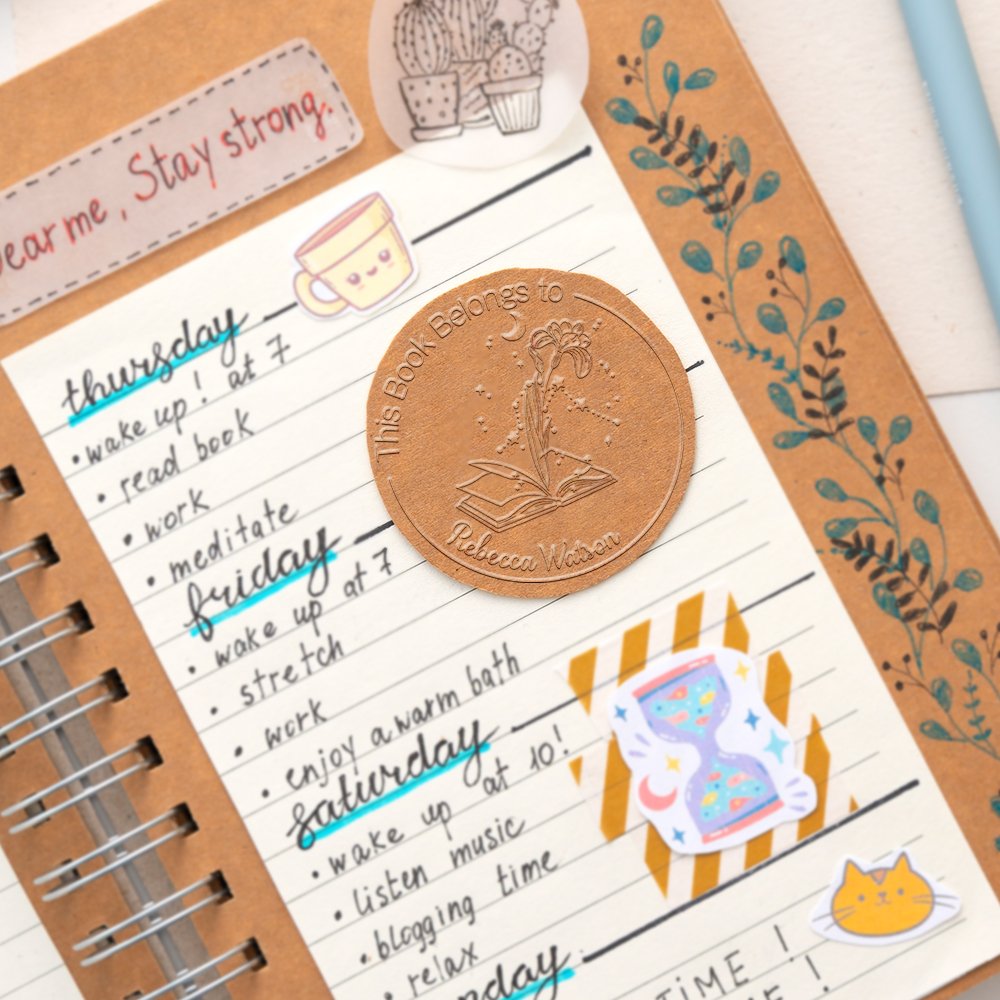 ear me, Stay strong.
thursday
• wake up! at 7
• read book
• work
• meditate
friday
• wake up at 7
• stretch
• work
• enjoy a warm bath
saturday
• wake up at 10!
• listen music
• blogging time
• relax
day
TIME !
E !
This Book Belongs to
Rebecca Watson